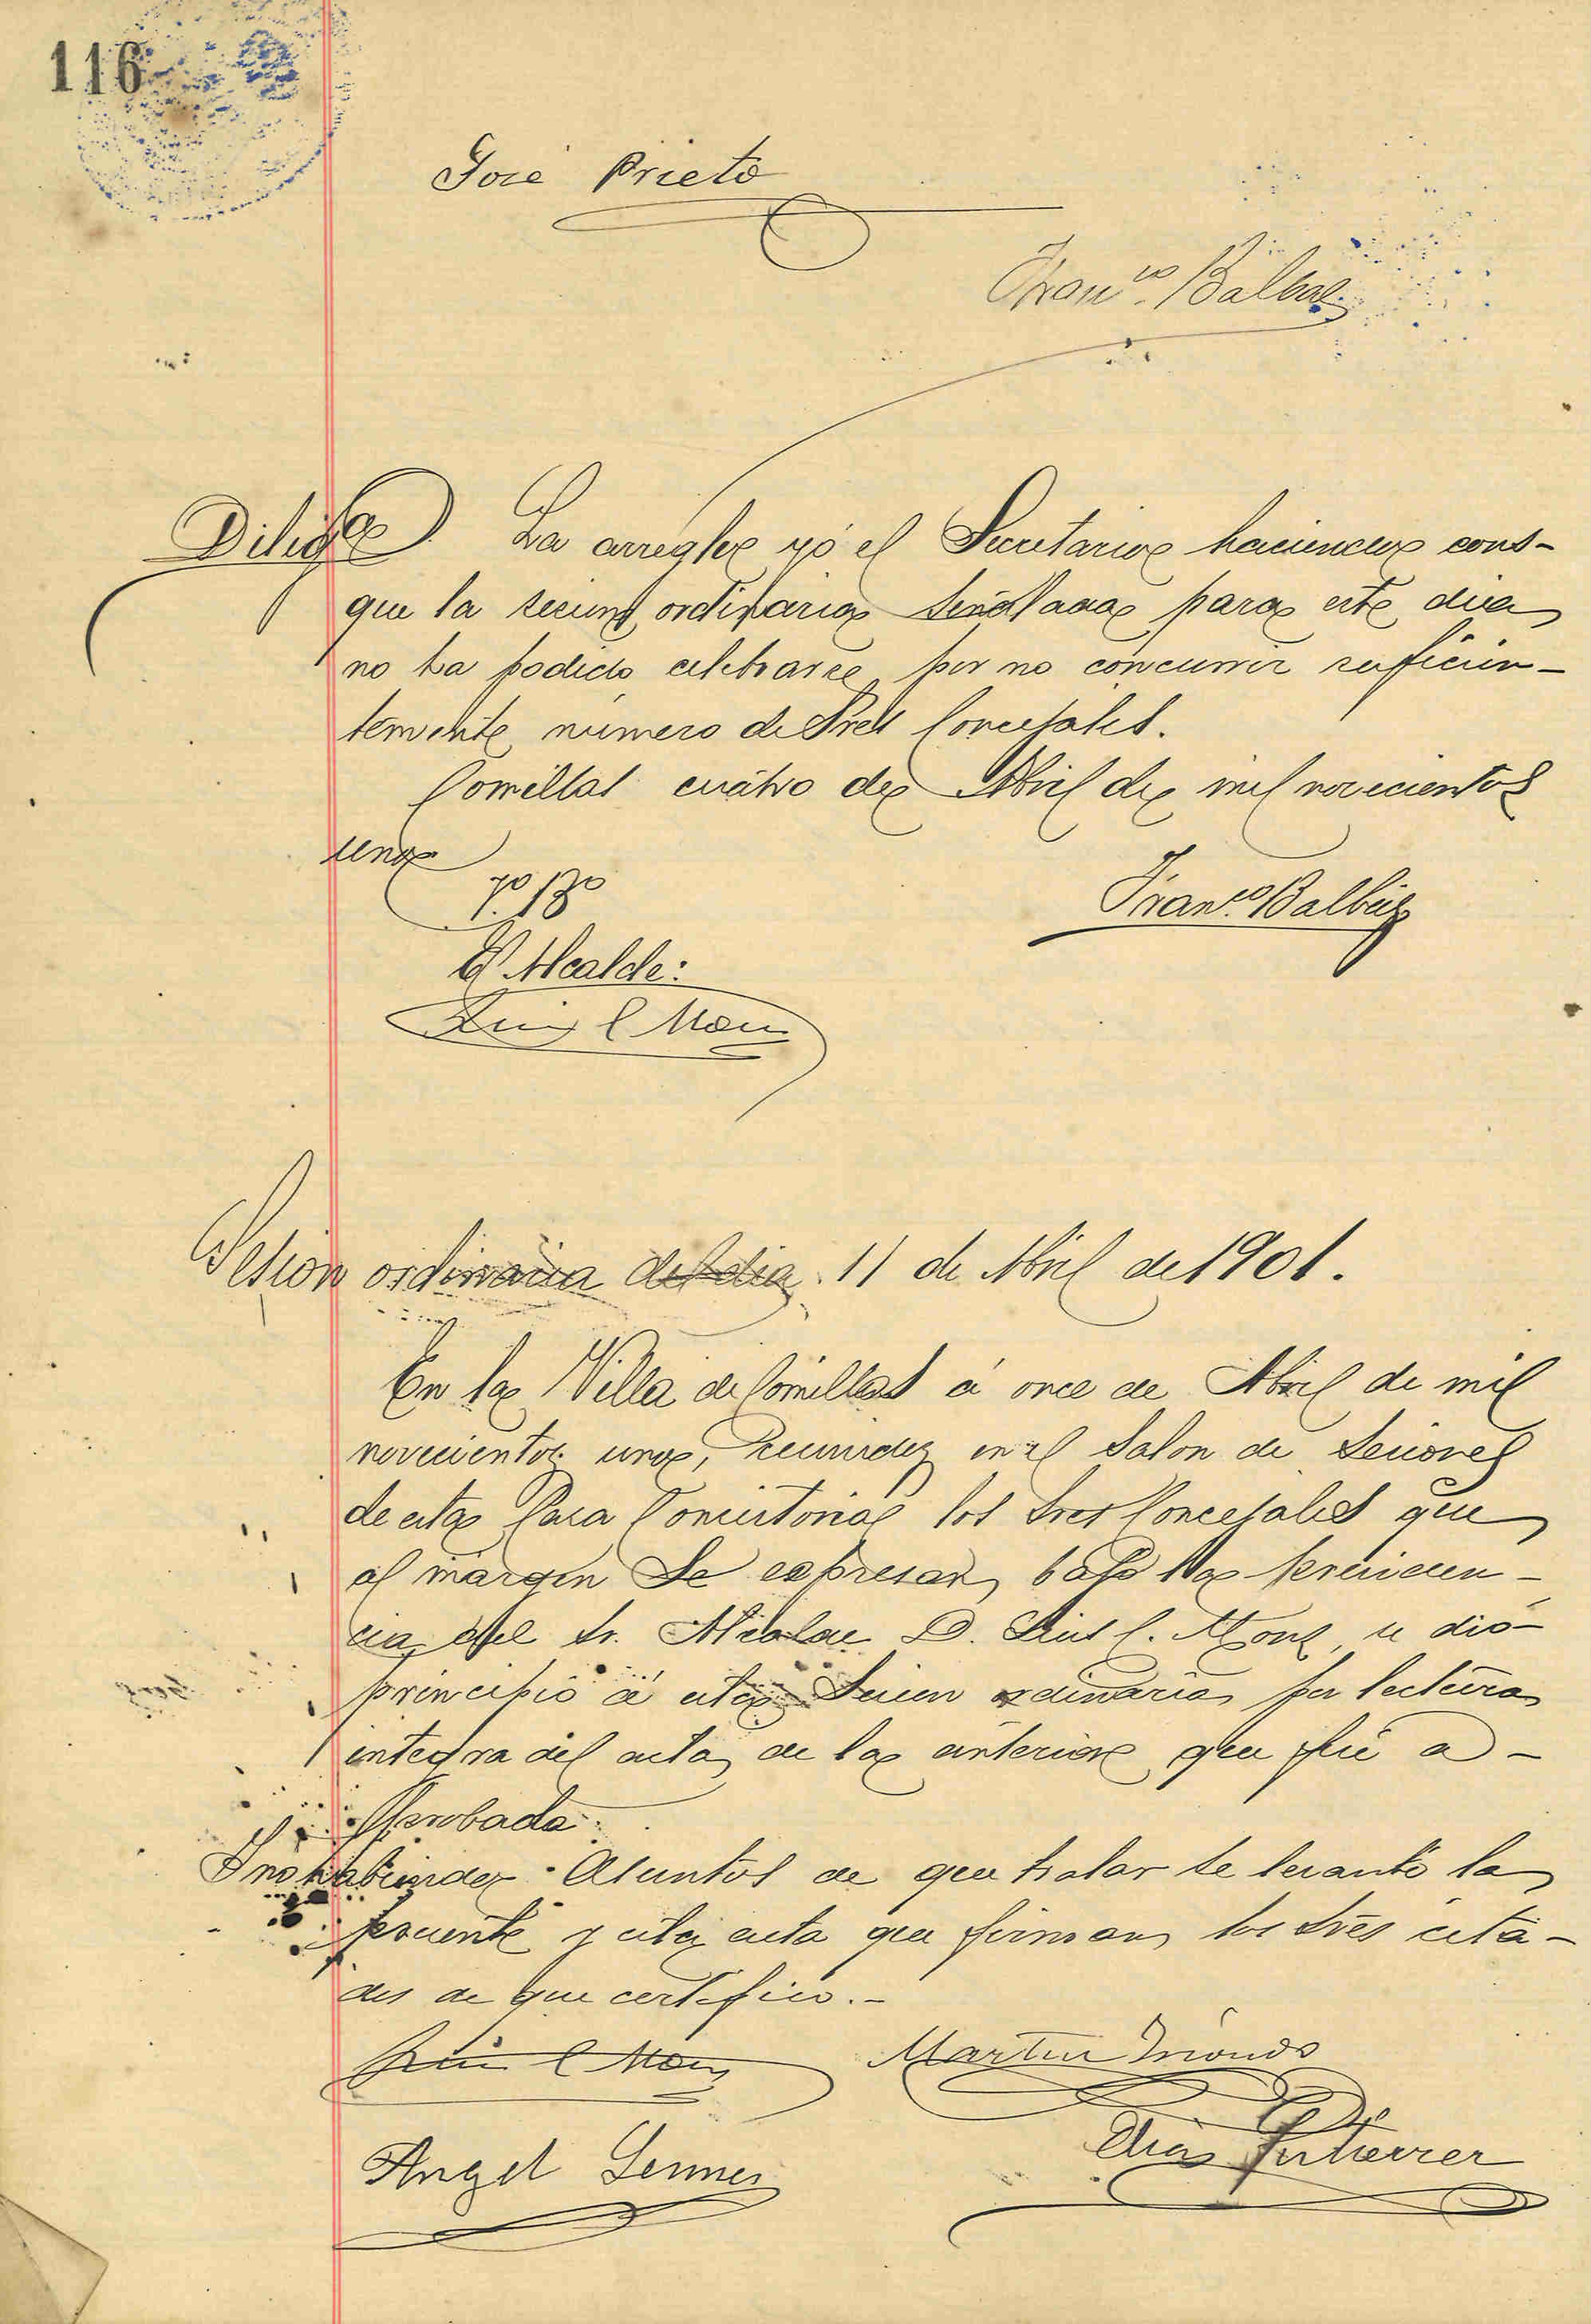 116
José Prieto
Fran.co Balbás
Diliga La arreglo yó el Secretario haciendo cons-
que la sesion ordinaria señalada para este dia
no ha podido celebrarse por no concurrir suficien-
temente número de Sres Concejales.
Comillas cuatro de Abril de mil novecientos
uno
Vo Bo
El Alcalde:
Franco Balbás
Luis C Mon
Sesion ordinaria del dia 11 de Abril de 1901.
En la Villa de Comillas á once de Abril de mil
novecientos uno, Reunidos en el Salon de Sesiones
de esta Casa Consistorial los Sres Concejales que
al márgen Se expresan, bajo la presiden-
cia del Sr. Alcalde D. Luis C. Mons, se dió
principio á esta Sesion ordinaria por lectura
integra del acta de la anterior que fué a-
probada.
I no habiendo Asuntos de que tratar se levantó la
presente y esta acta que firman los Sres cita-
dos de que certifico.-
Luis C Mon
Martin
Angel
Elias Gutierrez